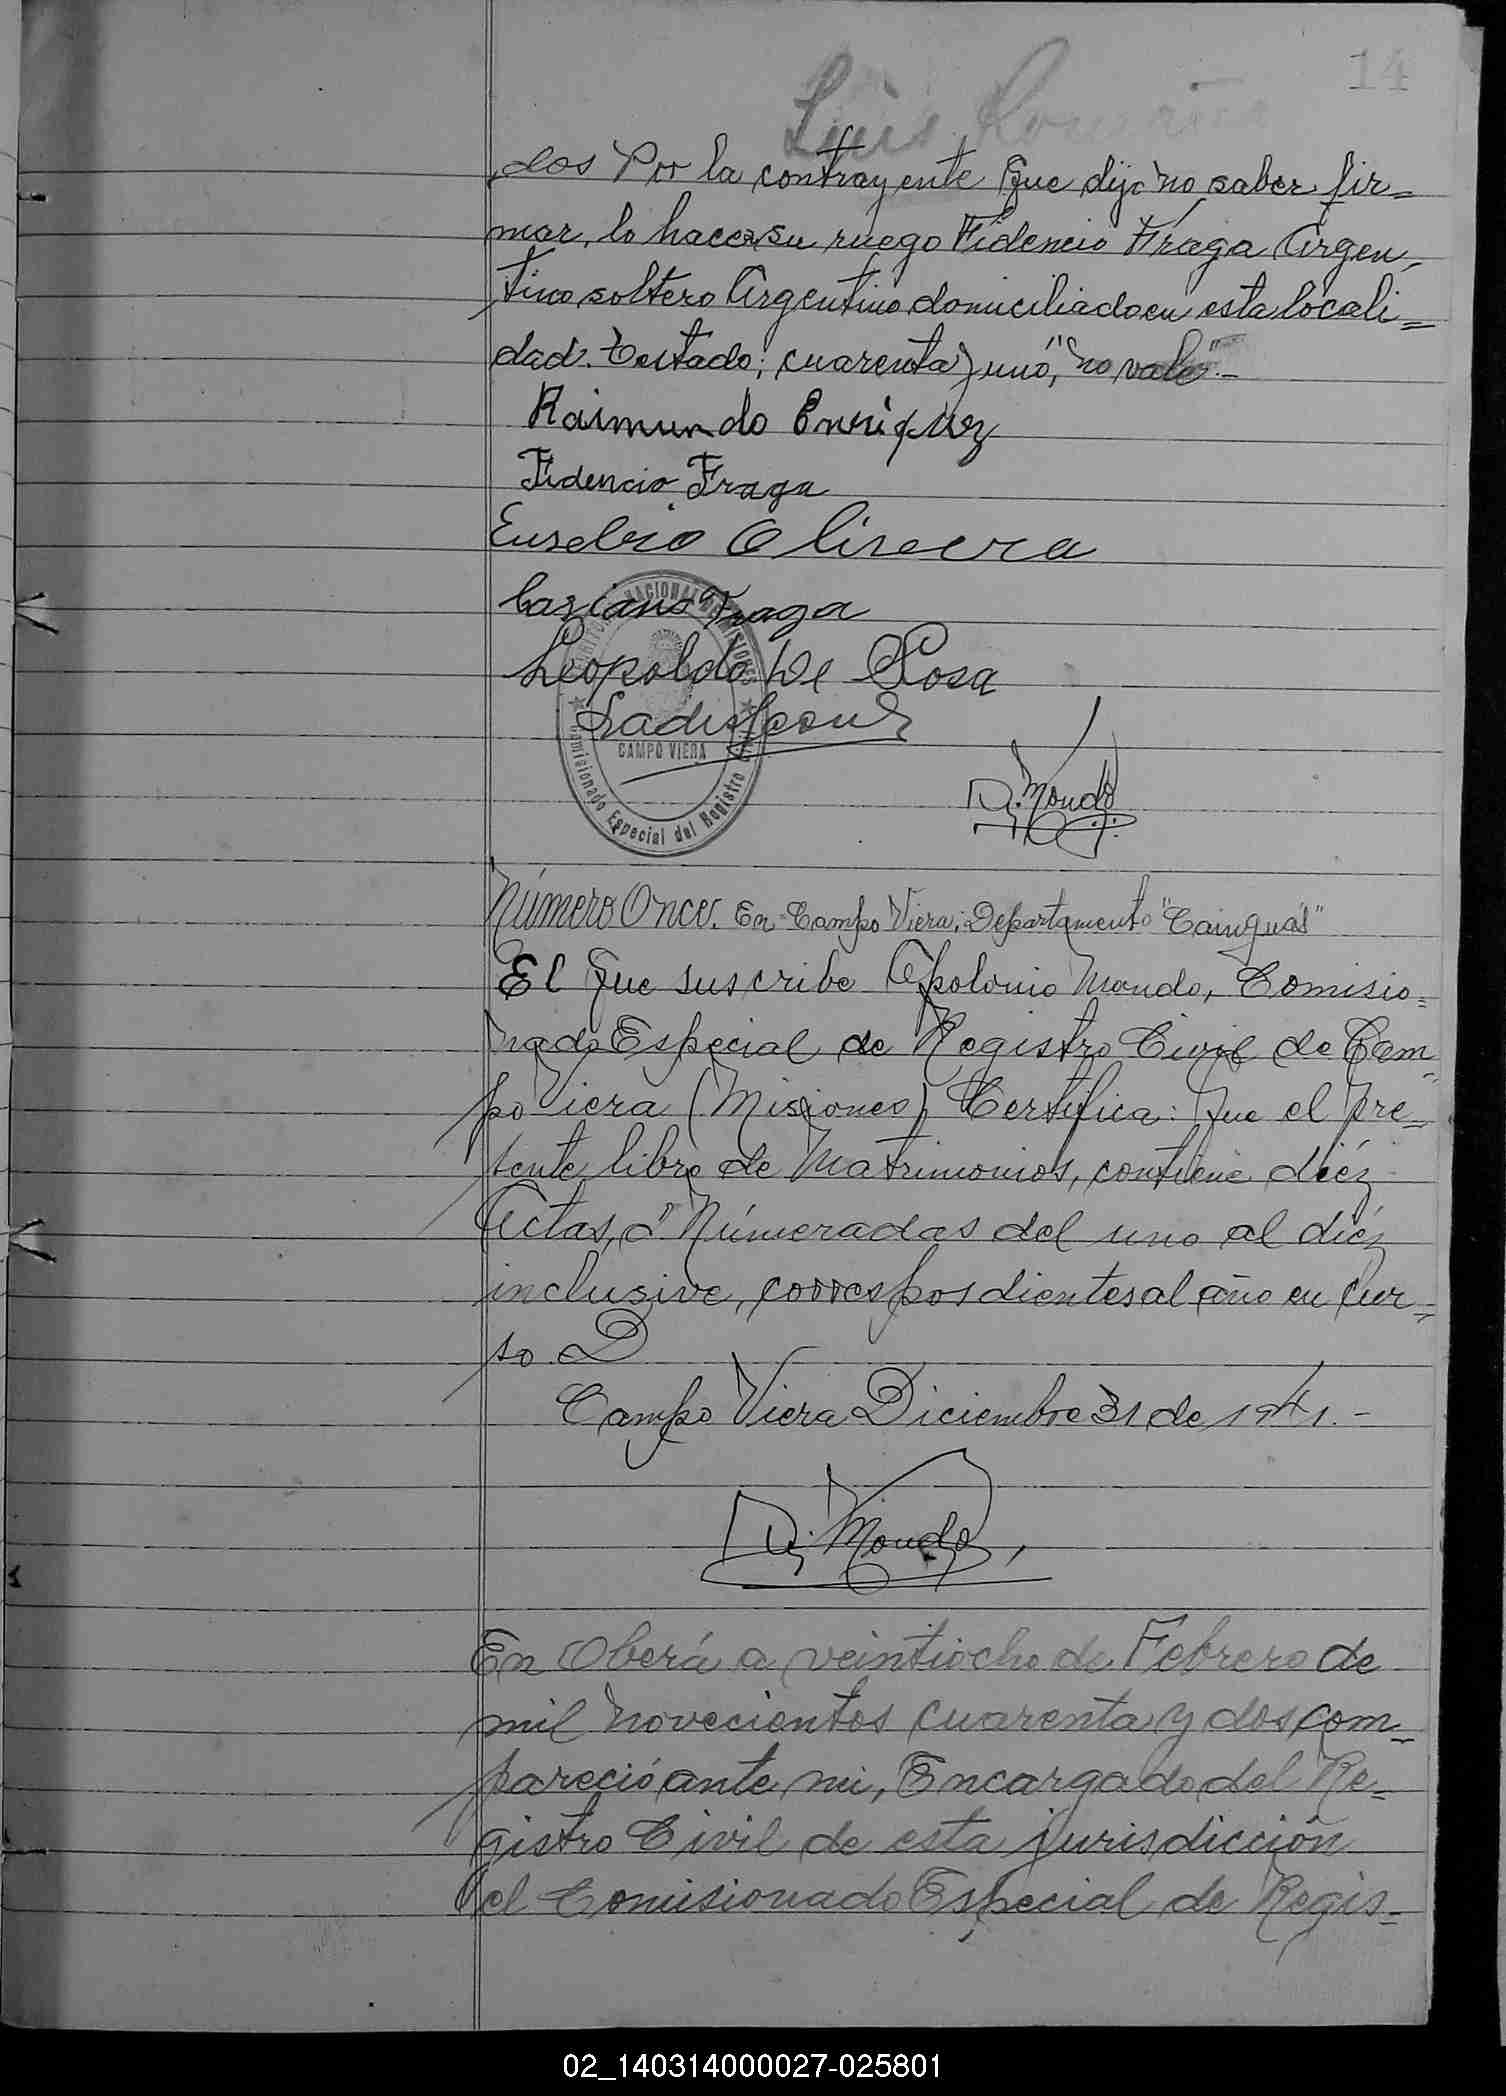 14
Luis Romaña
dos Por la contrayente que dijo no saber fir=
mar, lo hace a su ruego Fidencio Fraga Argen-
tino soltero Argentino domiciliado en esta locali=
dad. Testado; cuarenta y uno," no vale".-
Raimundo Enriquez
Fidencio Fraga
Eusebio Oliveera
Casiano Fraga
Leopoldo De Rosa
NACIONAL DE MISIONES
CAMPO VIERA
Comisionado Especial del Registro
D. Mondo
Número Once. En Campo Viera; Departamento "Cainguás"
El que suscribe Apolonio Mondo, Comisio=
nado Especial de Registro Civil de Cam=
po Viera (Misiones) Certifica: que el pre=
sente libro de Matrimonios, contiene diéz
Actas, Númeradas del uno al diéz
inclusive, correspondientes al año en cur=
so.
Campo Viera Diciembre 31 de 1941.-
D. Mondo
En Oberá a veintiocho de Febrero de
mil novecientos cuarenta y dos com-
pareció ante mi, Encargado del Re=
gistro Civil de esta jurisdicción
el Comisionado Especial de Regis=
02_140314000027-025801